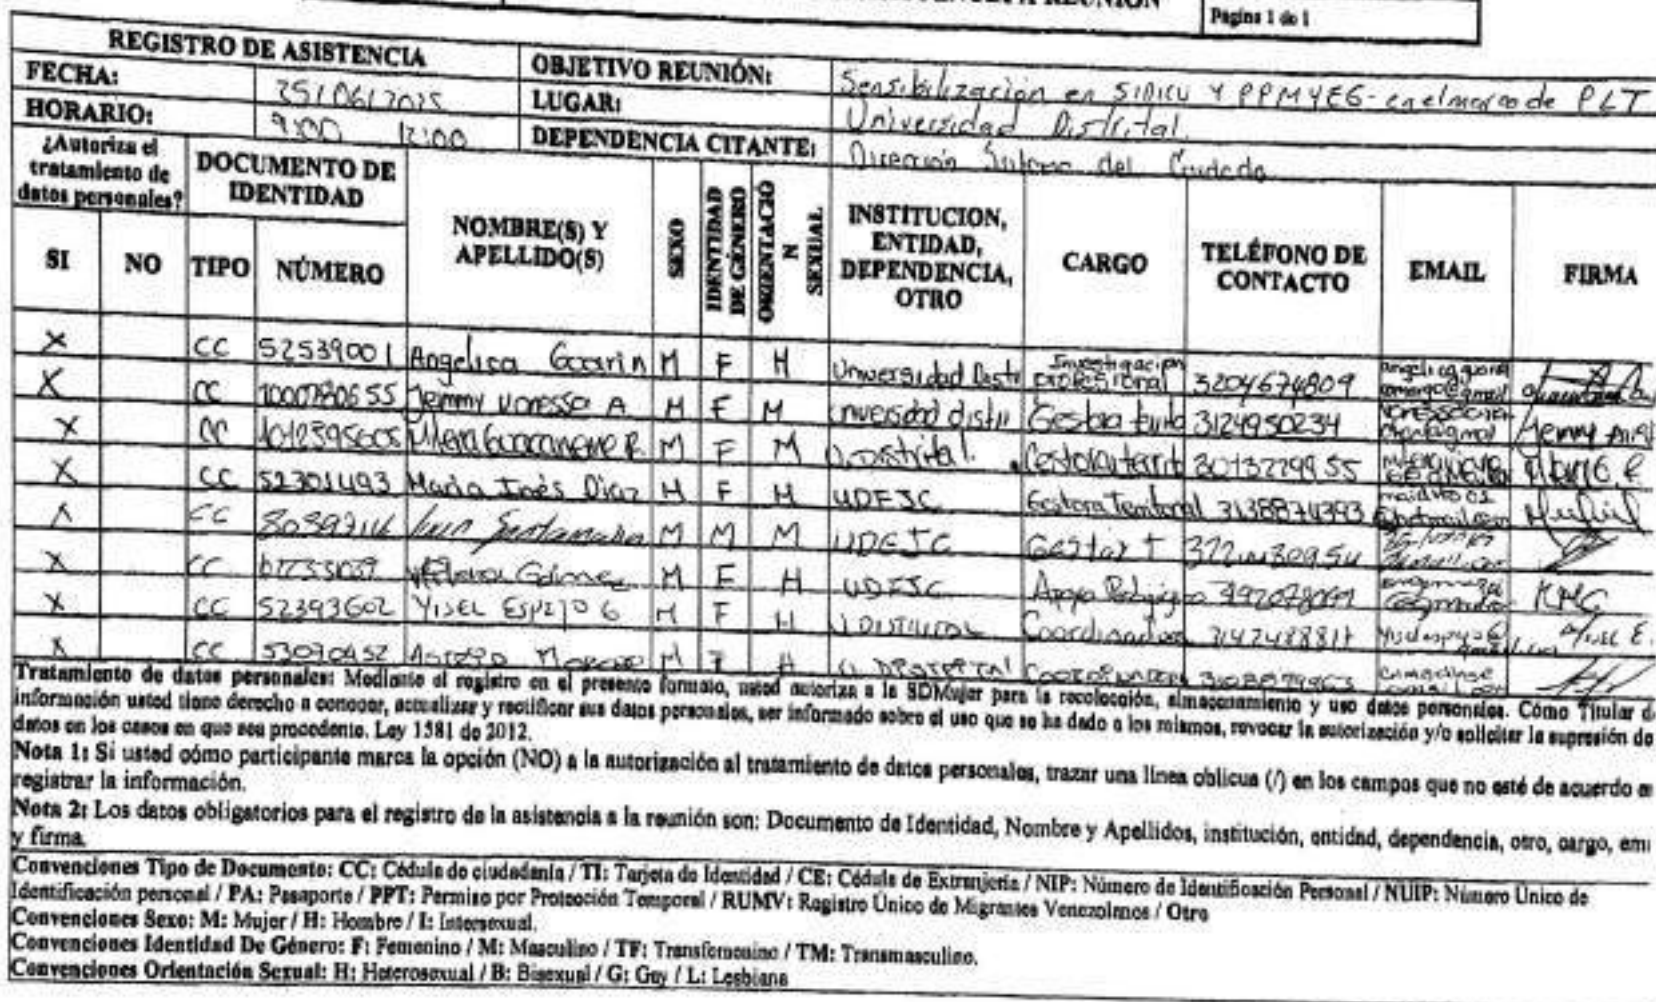 Página 1 de 1
REGISTRO DE ASISTENCIA
FECHA: 25/06/2025 OBJETIVO REUNIÓN: Sensibilización en SIDICU y PPMYEG - en el marco de PLT
HORARIO: 9:00 12:00 LUGAR: Universidad Distrital
DEPENDENCIA CITANTE: Dirección Sistema del Cuidado
¿Autoriza el tratamiento de datos personales? DOCUMENTO DE IDENTIDAD NOMBRE(S) Y APELLIDO(S) SEXO IDENTIDAD DE GÉNERO ORIENTACIÓN SEXUAL INSTITUCION, ENTIDAD, DEPENDENCIA, OTRO CARGO TELÉFONO DE CONTACTO EMAIL FIRMA
SI NO TIPO NÚMERO
X CC 52539001 Angelica Guarin M F H Universidad Distri Investigacion profesional 3204674809
X CC Jemmy Vanessa A M F M Universidad distri Gestora 3124950234
X CC 1012395605 M F M U.Distrital. Gestora territ
X CC 52301493 Maria Inés Diaz M F H UDFJC Gestora Territorial 3138874393
X CC M M M UDFJC Gestor T
X CC Gómez M F H UDFJC Apoyo
X CC 52393602 YISEL ESPEJO G M F H U DISTRITAL Coordinadora YISEL E.
X CC 53090452 MORENO M F H U DISTRITAL COORDINADORA
Tratamiento de datos personales: Mediante el registro en el presente formato, usted autoriza a la SDMujer para la recolección, almacenamiento y uso datos personales. Cómo Titular d
información usted tiene derecho a conocer, actualizar y rectificar sus datos personales, ser informado sobre el uso que se ha dado a los mismos, revocar la autorización y/o solicitar la supresión de
datos en los casos en que sea procedente. Ley 1581 de 2012.
Nota 1: Si usted cómo participante marca la opción (NO) a la autorización al tratamiento de datos personales, trazar una línea oblicua (/) en los campos que no esté de acuerdo
registrar la información.
Nota 2: Los datos obligatorios para el registro de la asistencia a la reunión son: Documento de Identidad, Nombre y Apellidos, institución, entidad, dependencia, otro, cargo, em
y firma.
Convenciones Tipo de Documento: CC: Cédula de ciudadanía / TI: Tarjeta de Identidad / CE: Cédula de Extranjería / NIP: Número de Identificación Personal / NUIP: Número Único de
Identificación personal / PA: Pasaporte / PPT: Permiso por Protección Temporal / RUMV: Registro Único de Migrantes Venezolanos / Otro
Convenciones Sexo: M: Mujer / H: Hombre / I: Intersexual.
Convenciones Identidad De Género: F: Femenino / M: Masculino / TF: Transfemenino / TM: Transmasculino.
Convenciones Orientación Sexual: H: Heterosexual / B: Bisexual / G: Gay / L: Lesbiana